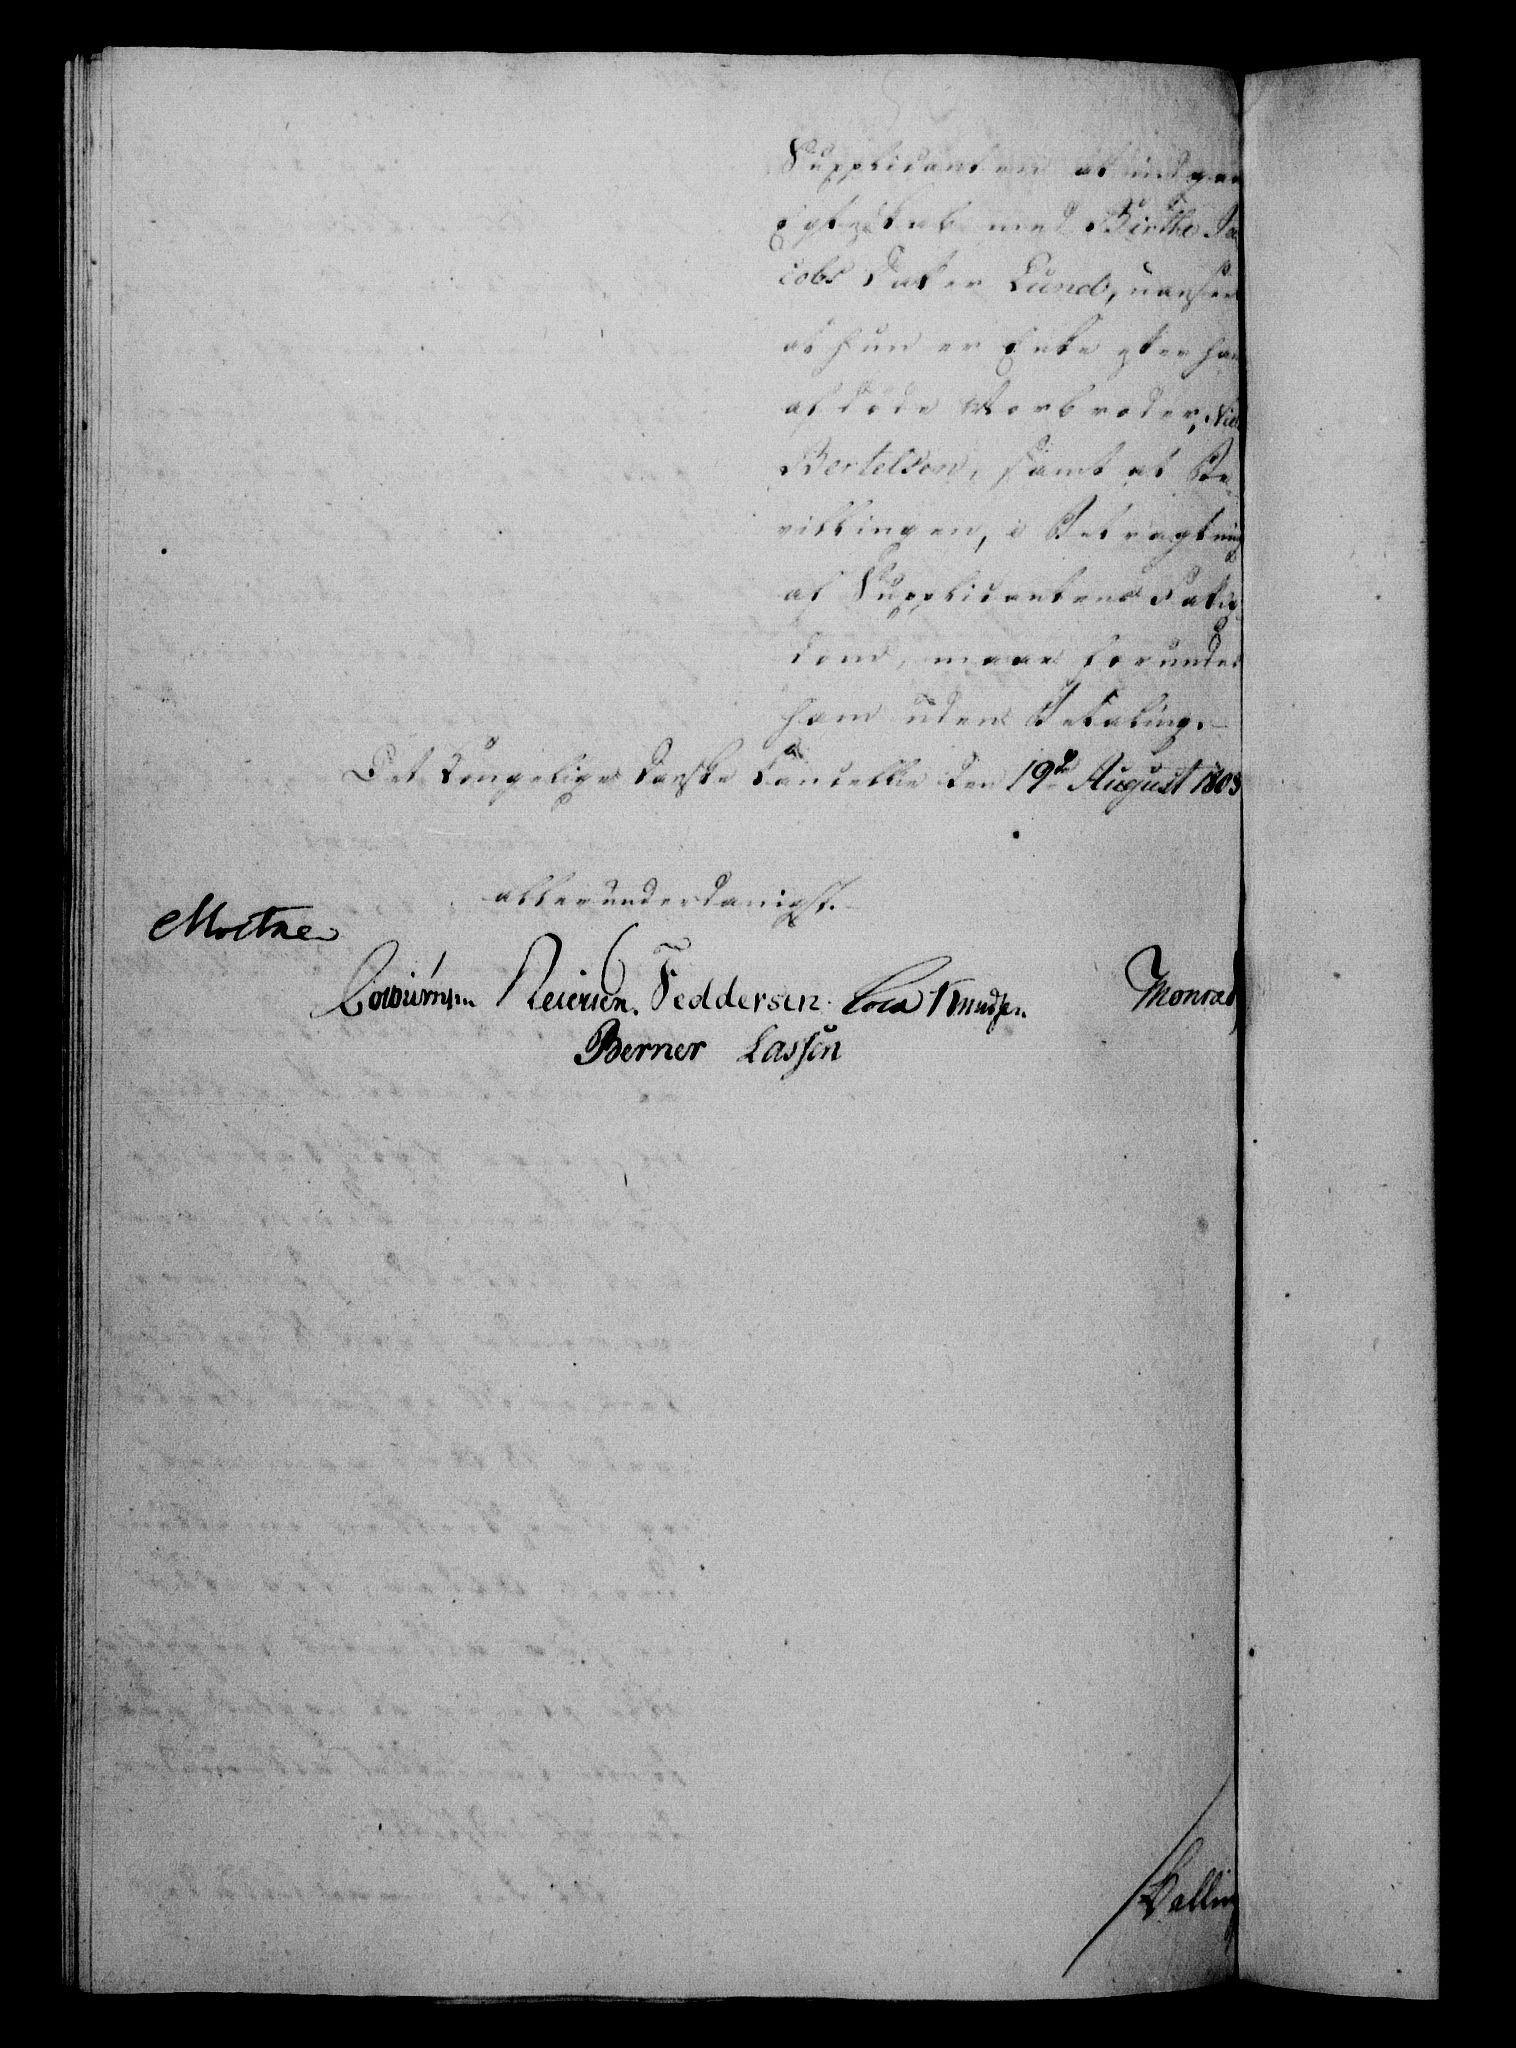 Supplicanten at indgaae
Egteskab med Birthe Ja
cobs Datter Lund, uanseet
at hun er Enke efter hans
afdøde Morbroder, Niels
Bertelsen, samt at Be-
villingen, i Betragtning
af Supplicantens Fattig
dom, maae forundes
ham uden Betaling.
Det Kongelige Danske Cancellie den 19de August 1803
allerunderdanigst.
Moltke
Colbiørnsen Reiersen. Feddersen. Cold Knudsen. Monrad
Berner Lassen